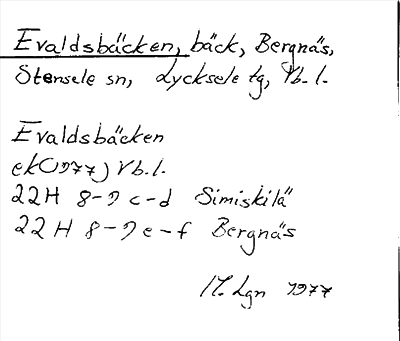 Evaldsbäcken, bäck, Bergnäs,
Stensele sn, Lycksele tg, Vb. l.
Evaldsbäcken
ek(1977) Vb. l.
22H 8-9 c-d Simiskilä
22 H 8-9 e-f Bergnäs
1977